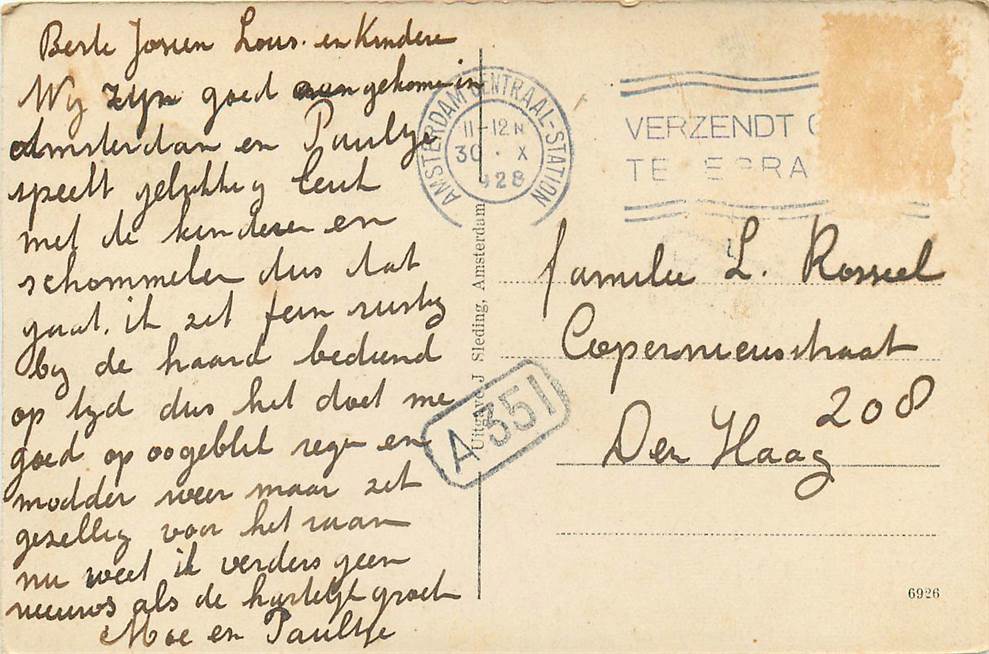 Beste Josien Lous. en Kindere
Wij zijn goed aangekome in
Amsterdam en Paultje
speelt gelukkig leuk
met de kinderen en
schommelen dus dat
gaat. ik zit fein rustig
bij de haard bediend
op tijd dus het doet me
goed op oogeblik regen en
modder weer maar zit
gezellig voor het raam
nu weet ik verders geen
nieuws als de hartelijk groet
Moe en Paultje
AMSTERDAM CENTRAAL-STATION
11-12 N
30 · X
1928
VERZENDT
TE
Uitgave J Sleding, Amsterdam
A 351
familie L. Rosseel
Copernicusstraat
208
Den Haag
6926